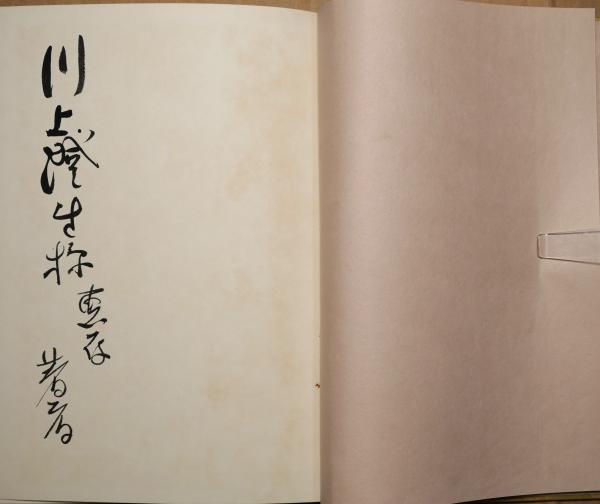 川上澄生様
恵存
著者